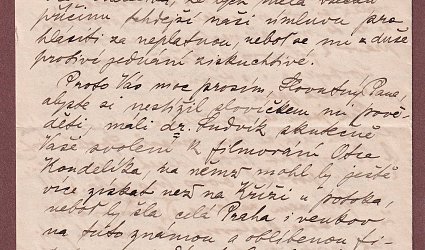 že bych měla vážnou
příčinu tehdejší naši úmluvu pro-
hlásiti za neplatnou, neboť se mi z duše
protiví jednání ziskuchtivé.
Proto Vás moc prosím, Slovutný Pane,
abyste si nestížil slovíčkem mi pově-
děti, má-li dr. Ludvík skutečně
Vaše svolení k filmování Otce
Kondelíka, na němž mohl by ještě
více získat než na Kříži u potoka,
neboť by šla celá Praha i venkov
na tuto známou a oblíbenou fi-